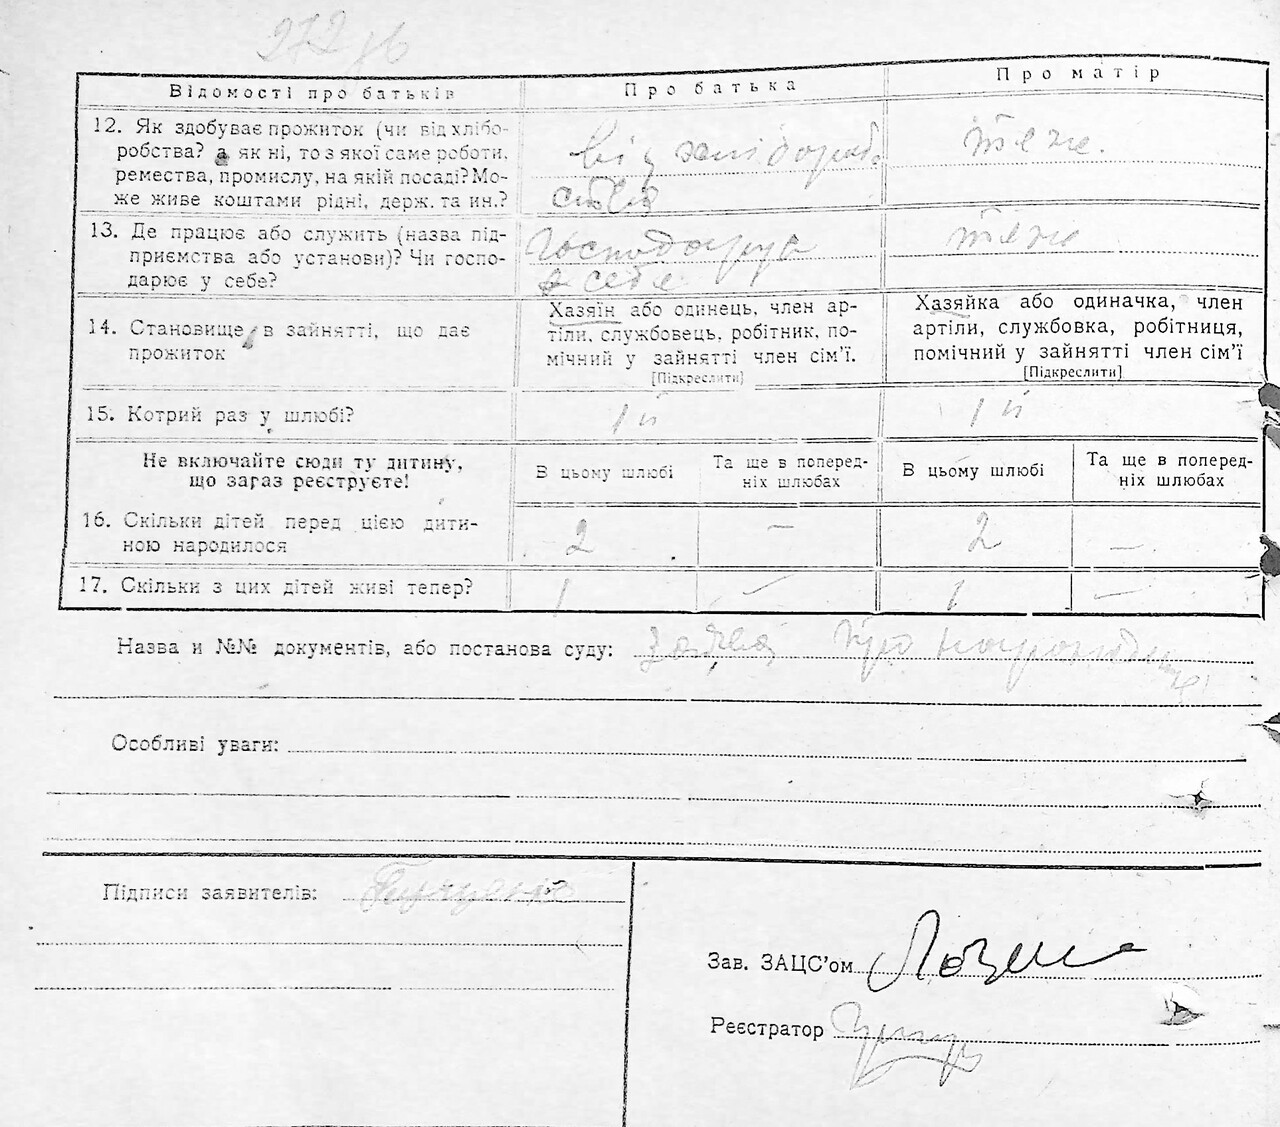 272 зв
Відомості про батьків
Про батька
Про матір
12. Як здобуває прожиток (чи від хлібо-
робства? а як ні, то з якої саме роботи,
ремества, промислу, на якій посаді? Мо-
же живе коштами рідні, держ. та ин.?
від хліборобс
ства
теж.
13. Де працює або служить (назва під-
приємства або установи)? Чи госпо-
дарює у себе?
господарує
в себе
теж
14. Становище в зайнятті, що дає
прожиток
Хазяїн або одинець, член ар-
тіли, службовець, робітник, по-
мічний у зайнятті член сім’ї.
[Підкреслити]
Хазяйка або одиначка, член
артіли, службовка, робітниця,
помічний у зайнятті член сім’ї
[Підкреслити]
15. Котрий раз у шлюбі?
1й
1й
Не включайте сюди ту дитину,
що зараз реєструєте!
В цьому шлюбі
Та ще в поперед-
ніх шлюбах
В цьому шлюбі
Та ще в поперед-
ніх шлюбах
16. Скільки дітей перед цією дити-
ною народилося
2
—
2
—
17. Скільки з цих дітей живі тепер?
1
—
1
—
Назва и №№ документів, або постанова суду: заява про народження
Особливі уваги:
Підписи заявителів:
Зав. ЗАЦС’ом
Реєстратор